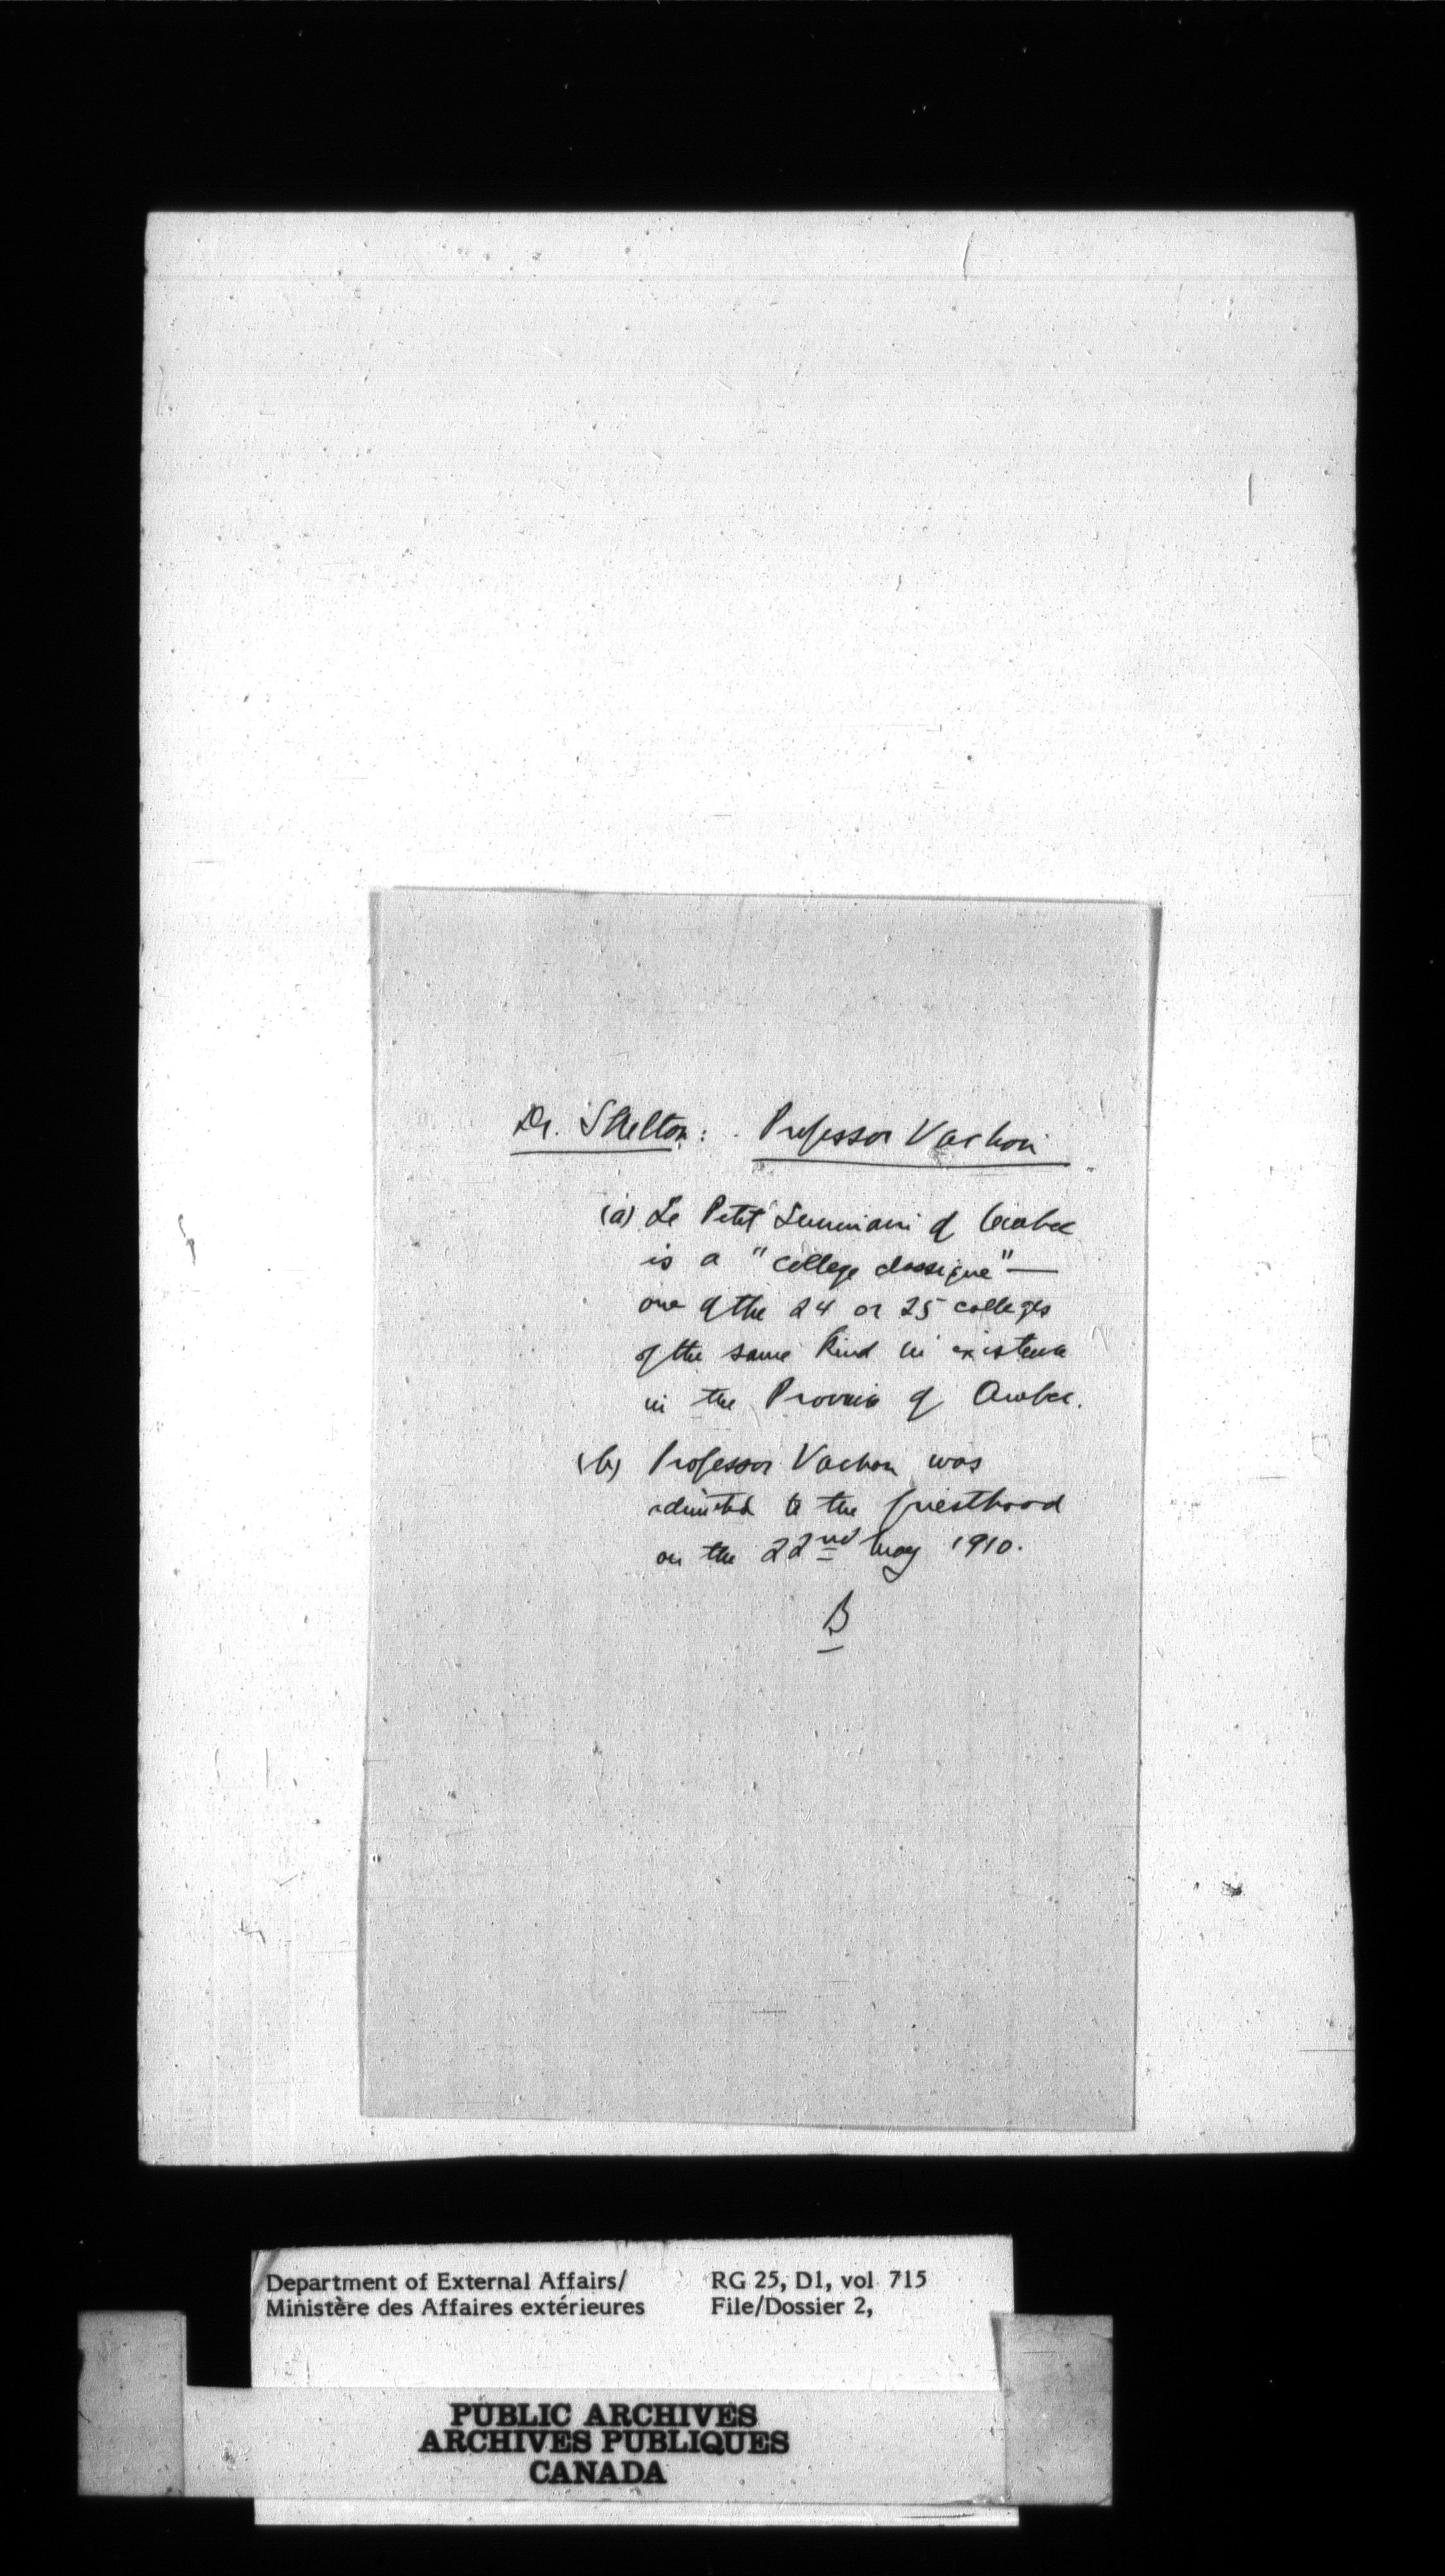 Dr. Skelton: Professor Vachon
(a) Le Petit Seminaire of Quebec
is a "college classique" —
one of the 24 or 25 colleges
of the same kind in existence
in the Province of Quebec.
(b) Professor Vachon was
admitted to the priesthood
on the 22nd May 1910.
B
Department of External Affairs/ RG 25, D1, vol 715
Ministère des Affaires extérieures File/Dossier 2,
PUBLIC ARCHIVES
ARCHIVES PUBLIQUES
CANADA